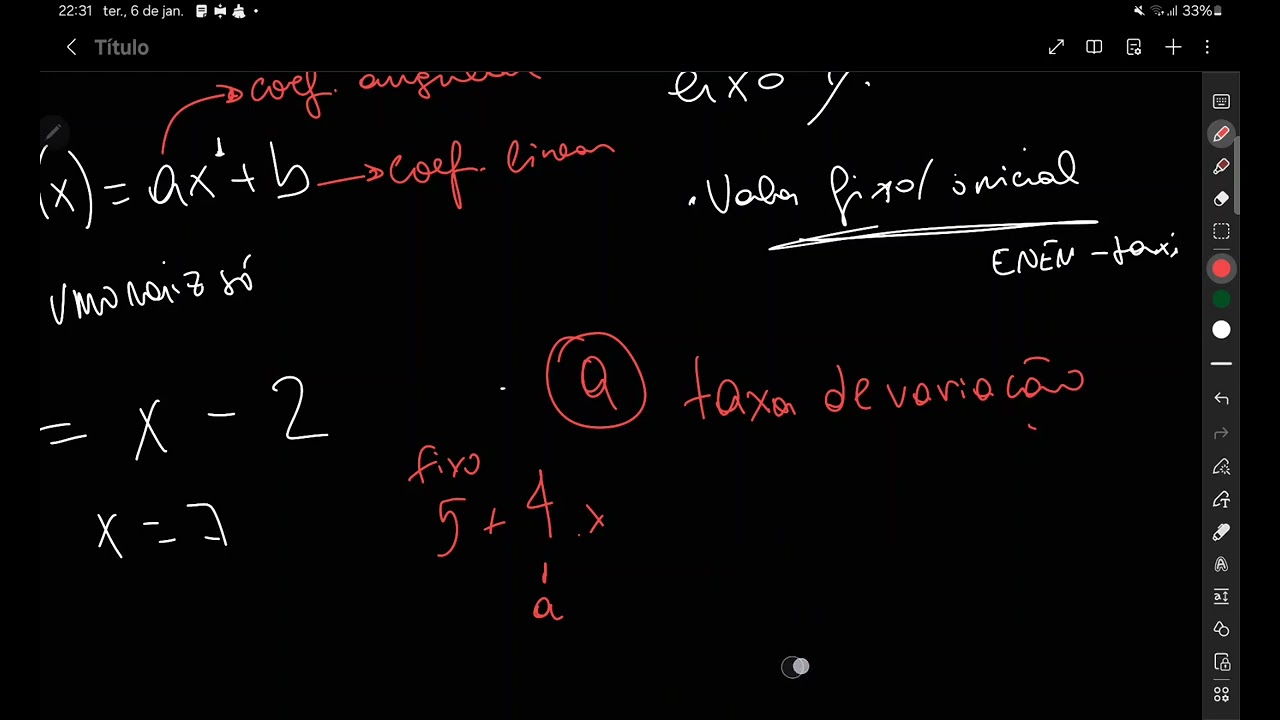 22:31 ter., 6 de jan.
33%
Título
coef. angular
eixo y.
(x) = ax¹ + b → coef. linear
• Valor fixo/inicial
ENEM - taxi
uma raiz só
a taxa de variação
= x - 2
fixo
5 + 4 . x
x = 7
a